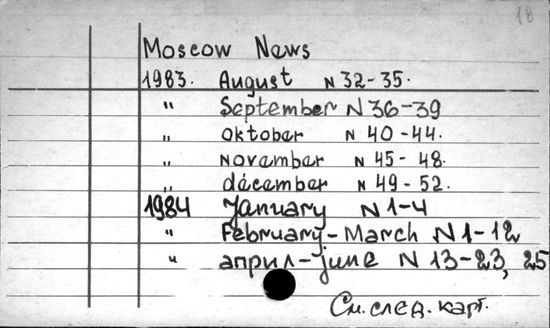 18
Moscow News
1983. August N 32-35.
" September N 36-39
" Oktober N 40-44.
" november N 45-48.
" december N 49-52.
1984 January N 1-4
" February-March N 1-12
" април-june N 13-23, 25
См. след. карт.